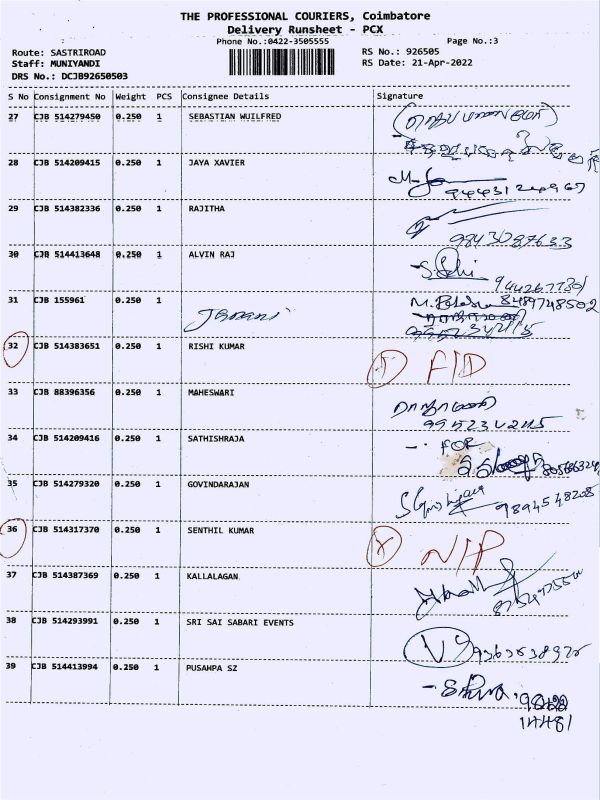 THE PROFESSIONAL COURIERS, Coimbatore
Delivery Runsheet - PCX
Phone No.:0422-3505555
Page No.:3
Route: SASTRIROAD
RS No.: 926505
Staff: MUNIYANDI
RS Date: 21-Apr-2022
DRS No.: DCJB92650503
S No Consignment No Weight PCS Consignee Details Signature
27 CJB 514279450 0.250 1 SEBASTIAN WUILFRED
28 CJB 514209415 0.250 1 JAYA XAVIER
29 CJB 514382336 0.250 1 RAJITHA 9843087633
30 CJB 514413648 0.250 1 ALVIN RAJ
31 CJB 155961 0.250 1 Janani 8489748502
32 CJB 514383651 0.250 1 RISHI KUMAR F/D
33 CJB 88396356 0.250 1 MAHESWARI 9952342115
34 CJB 514209416 0.250 1 SATHISHRAJA FOR
35 CJB 514279320 0.250 1 GOVINDARAJAN 9894548208
36 CJB 514317370 0.250 1 SENTHIL KUMAR N/P
37 CJB 514387369 0.250 1 KALLALAGAN
38 CJB 514293991 0.250 1 SRI SAI SABARI EVENTS
39 CJB 514413994 0.250 1 PUSAHPA SZ
14481